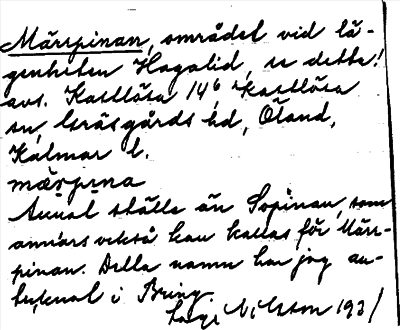 Märrpinan, området vid lä-
genheten Hagalid, se detta!
avs. Kastlösa 14⁶, Kastlösa
sn, Gräsgårds hd, Öland,
Kalmar l.
mær̥pina
Annat ställe än Sopinan, som
annars också kan kallas för Märr-
pinan. Detta namn har jag an-
tecknat i Bring.
Nilsson 1931